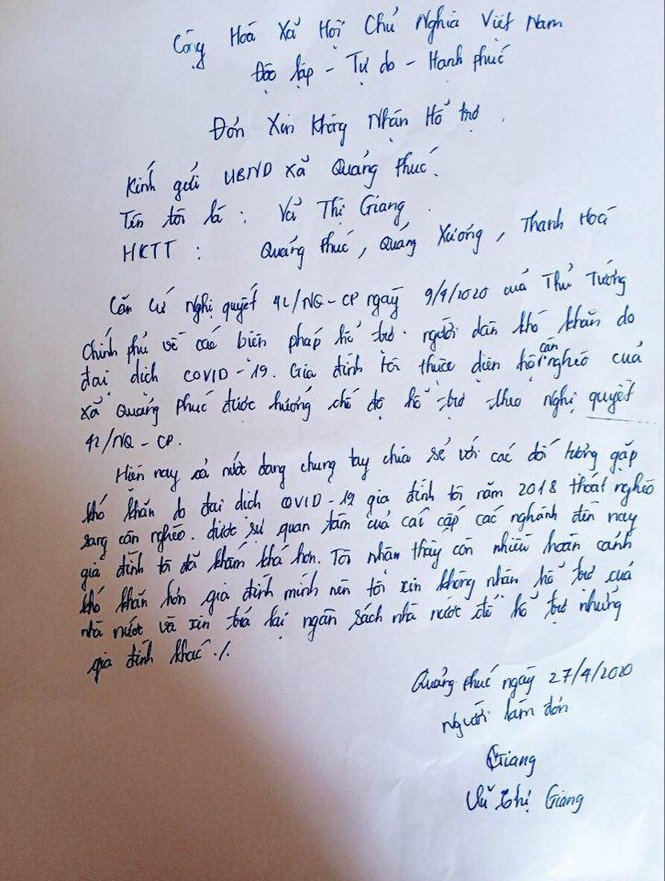 Cộng Hoà Xã Hội Chủ Nghĩa Việt Nam
Độc lập - Tự do - Hạnh phúc
Đơn Xin Không Nhận Hỗ trợ
Kính gửi UBND xã Quảng Phúc.
Tên tôi là : Vũ Thị Giang
HKTT : Quảng Phúc, Quảng Xương, Thanh Hoá
Căn cứ nghị quyết 42/NQ-CP ngày 9/4/2020 của Thủ Tướng
Chính phủ về các biện pháp hỗ trợ người dân khó khăn do
đại dịch COVID-19. Gia đình tôi thuộc diện hộ cận nghèo của
xã Quảng Phúc được hưởng chế độ hỗ trợ theo nghị quyết
42/NQ-CP.
Hiện nay cả nước đang chung tay chia sẻ với các đối tượng gặp
khó khăn do đại dịch COVID-19 gia đình tôi năm 2018 thoát nghèo
sang cận nghèo. được sự quan tâm của các cấp các nghành đến nay
gia đình tôi đã khấm khá hơn. Tôi nhận thấy còn nhiều hoàn cảnh
khó khăn hơn gia đình mình nên tôi xin không nhận hỗ trợ của
nhà nước và xin trả lại ngân sách nhà nước để hỗ trợ những
gia đình khác./.
Quảng Phúc ngày 27/4/2020
Người làm đơn
Giang
Vũ Thị Giang